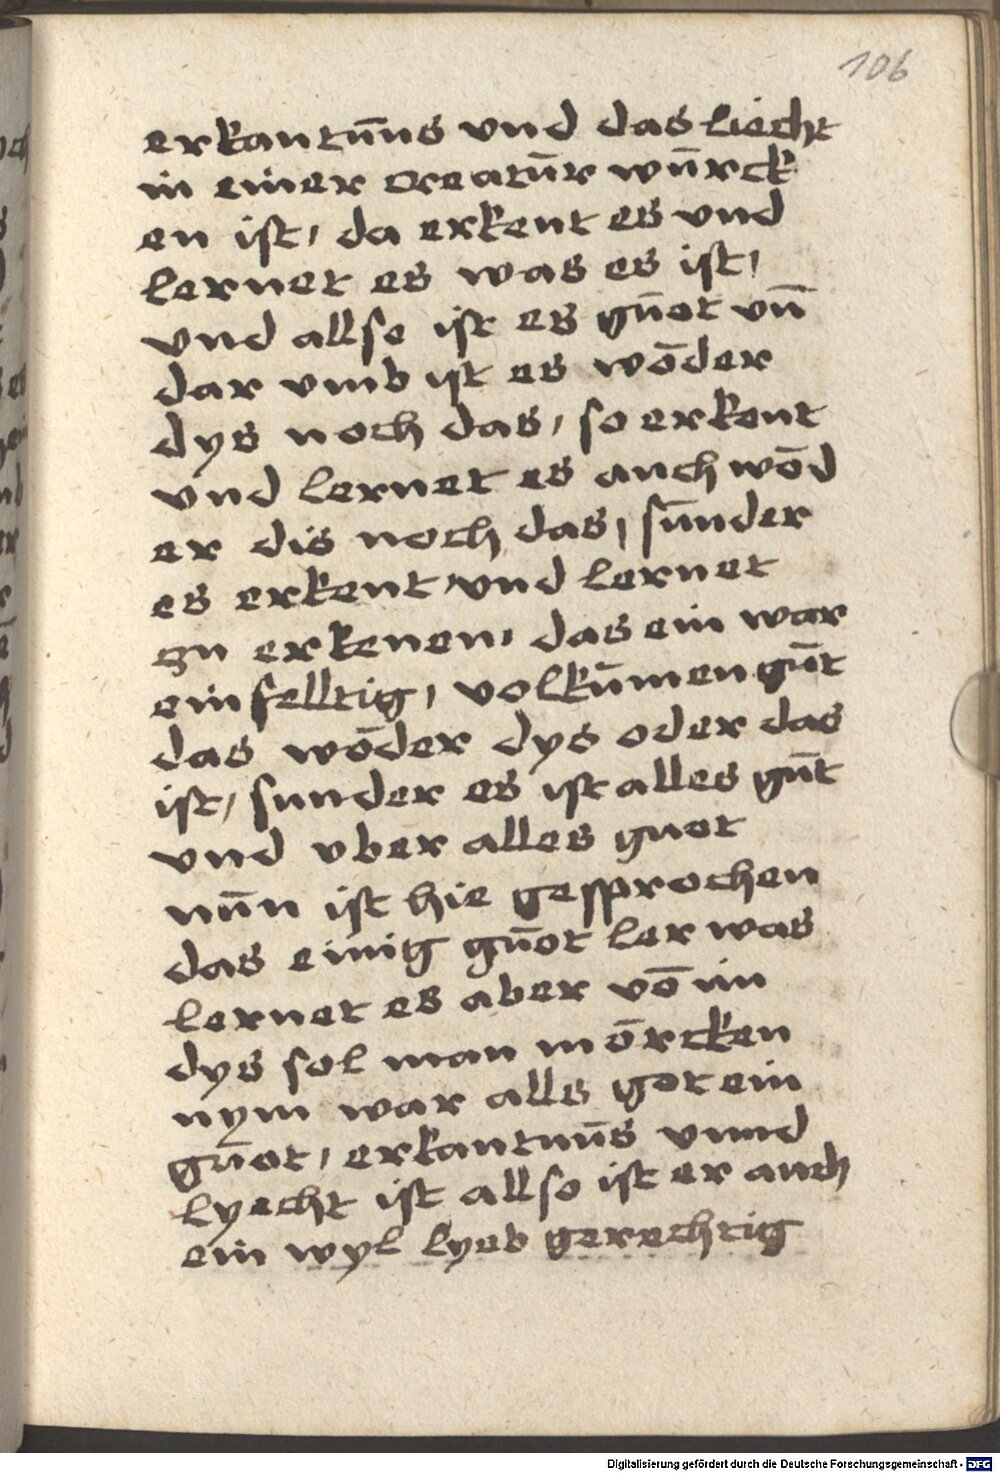 106
erkantūns vnd das liecht
in einer creatūr wūrck
en ist, da erkent es vnd
lernet es was es ist,
vnd allso ist es gūot vn̄
dar vmb ist es wōder
dys noch das, so erkent
vnd lernet es auch wōd
er dis noch das, sūnder
es erkent vnd lernet
zu erkenen, das ein war
einfelltig, volkūmen gūt
das wōder dys oder das
ist, sunder es ist alles gūt
vnd vber alles guot
nūn ist hie gesprochen
das einig gūot ler was
lernet es aber vō im
dys sol man mōrcken
nym war alls got ein
gūot, erkantnūs vnnd
lyecht ist allso ist er auch
ein wyl lyeb gerechtig
Digitalisierung gefördert durch die Deutsche Forschungsgemeinschaft - DFG